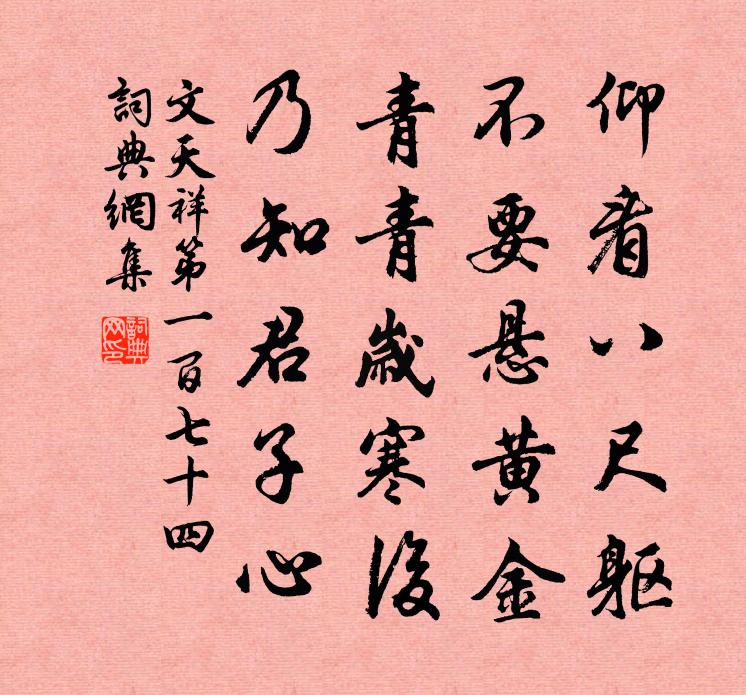 仰看八尺躯
不要悬黄金
青青歲寒後
乃知君子心
文天祥第一百七十四
詞典網集
詞典网印